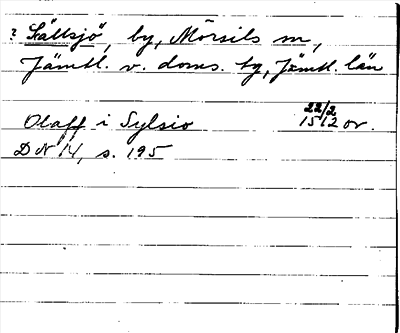 ? Sällsjö, by, Mörsils sn,
Jämtl. v. doms. tg, Jämtl. län
Olaff i Sylsio 22/2 1512 or.
DN 14, s. 195